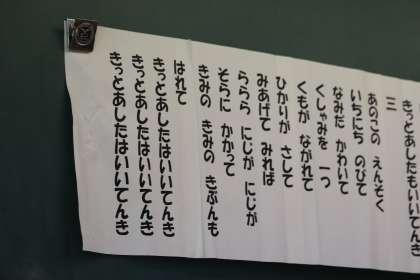 きっとあしたもいいてんき
三
あのこの えんそく
いちにち のびて
なみだ かわいて
くしゃみを 一つ
くもが ながれて
ひかりが さして
みあげて みれば
ららら にじが にじが
そらに かかって
きみの きみの きぶんも
はれて
きっとあしたはいいてんき
きっとあしたはいいてんき
きっとあしたはいいてんき